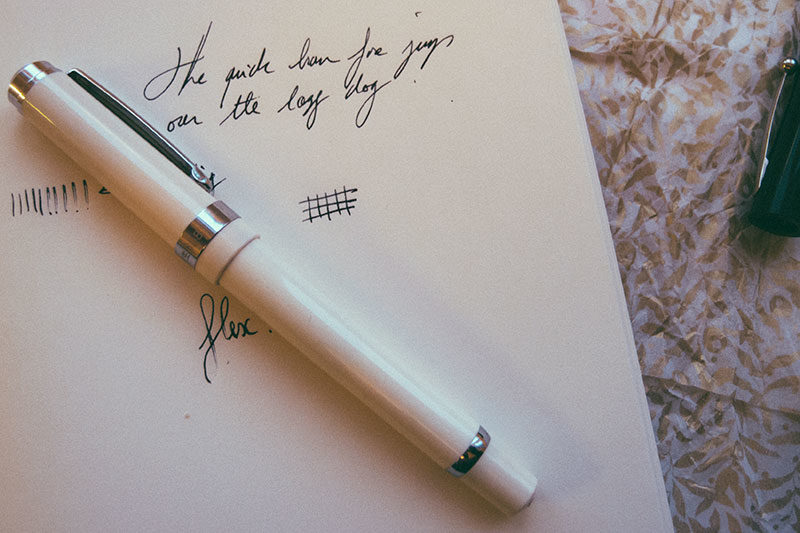 The quick bown fox jumps
over the lazy dog.
flex.